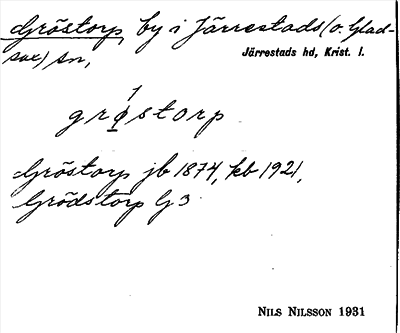 Gröstorp, by i Järrestads (o. Glad-
sax) sn,
Järrestads hd, Krist. l.
grǿ̱storp
Gröstorp jb 1874, kb 1921,
Grödstorp G 3
NILS NILSSON 1931